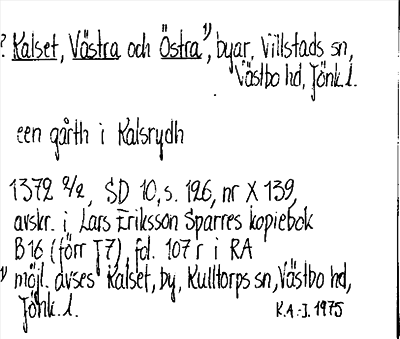 ? Kalset, Västra och Östra ¹⁾, byar, Villstads sn,
Västbo hd, Jönk. l.
een gårth i Kalsrydh
1372 2/2, SD 10, s. 126, nr X 139,
avskr. i Lars Eriksson Sparres kopiebok
B 16 (förr T 7), fol. 107 r i RA
¹⁾ möjl. avses Kalset, by, Kulltorps sn, Västbo hd,
Jönk. l.
K.A.-J. 1975